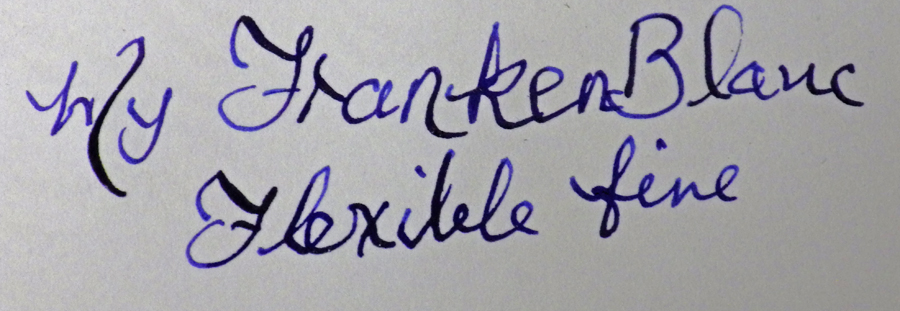 My FrankenBlanc
Flexible fine